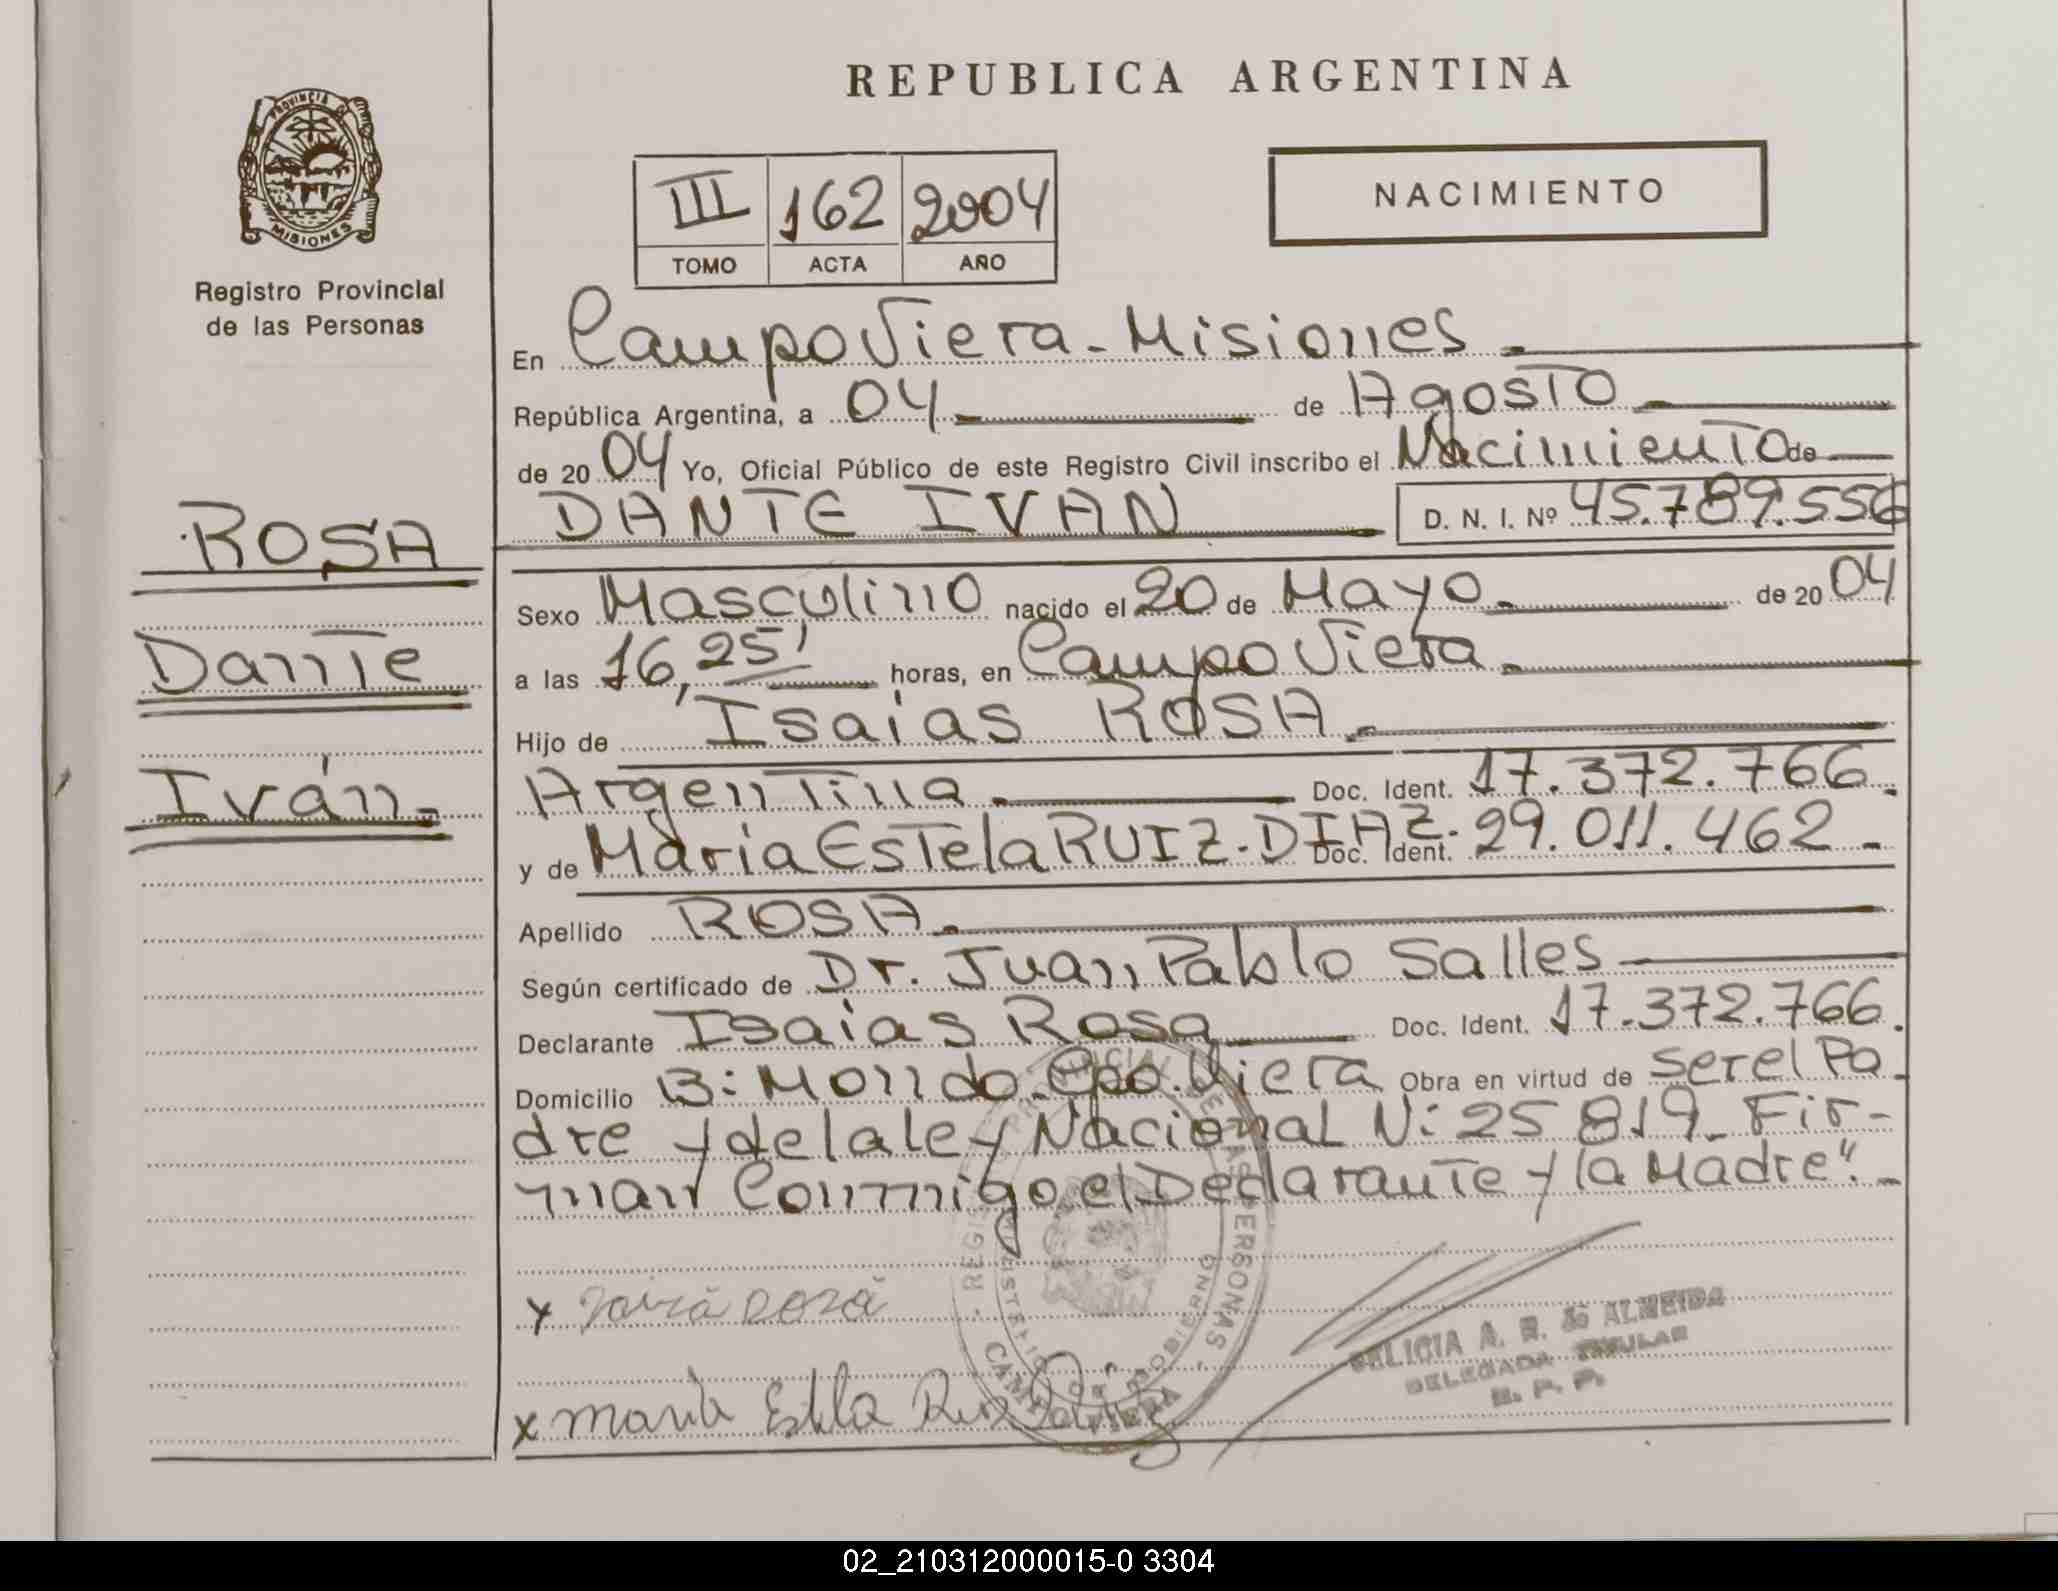 REPUBLICA ARGENTINA
PROVINCIA DE
MISIONES
III 162 2004
TOMO ACTA AÑO
NACIMIENTO
Registro Provincial
de las Personas
ROSA
Dante
Iván.-
En Campo Viera - Misiones.-
República Argentina, a 04.- de Agosto.-
de 20 04 Yo, Oficial Público de este Registro Civil inscribo el Nacimiento de
DANTE IVAN D. N. I. Nº 45.789.556
Sexo Masculino nacido el 20 de Mayo.- de 20 04
a las 16,25' horas, en Campo Viera.-
Hijo de Isaías ROSA.-
Argentina.- Doc. Ident. 17.372.766.
y de María Estela RUIZ.DIAZ. Doc. Ident. 29.011.462.-
Apellido ROSA.-
Según certificado de Dr. Juan Pablo Salles
Declarante Isaías Rosa Doc. Ident. 17.372.766.
Domicilio B: Mondo. Cpo. Viera Obra en virtud de ser el Pa-
dre y de la ley Nacional N: 25 819_ Fir-
man Conmigo el Declarante y la Madre".-
x
x maria Estela Ruiz
REGISTRO PROVINCIAL DE LAS PERSONAS
MINISTERIO DE GOBIERNO
CAMPO VIERA
A. R. de ALMEIDA
DELEGADA TITULAR
R. P. P.
02_210312000015-0 3304